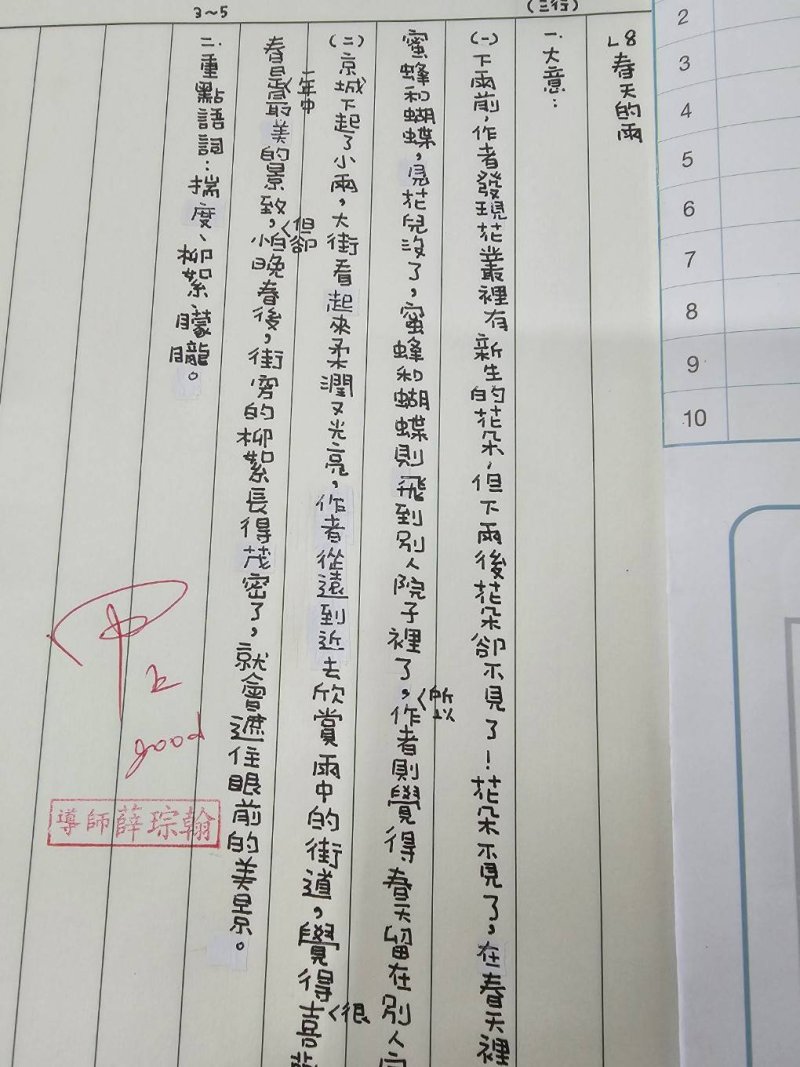 3~5
(三行)
L8 春天的雨
一、大意：
(一)下雨前，作者發現花叢裡有新生的花朵，但下雨後花朵卻不見了！花朵不見了，在春天裡
蜜蜂和蝴蝶，見花兒沒了，蜜蜂和蝴蝶則飛到別人院子裡了，所以作者則覺得春天留在別人
(二)京城下起了小雨，大街看起來柔潤又光亮，作者從遠到近去欣賞雨中的街道，覺得很喜
春是一年中最美的景致，但卻怕晚春後，街旁的柳絮長得茂密了，就會遮住眼前的美景。
二、重點語詞：揣度、柳絮、朦朧。
甲上
good
導師薛琮翰
2
3
4
5
6
7
8
9
10